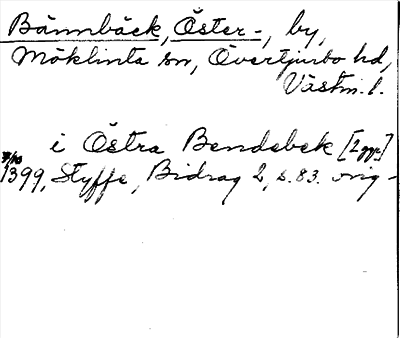 Bännbäck, Öster-, by,
Möklinta sn, Övertjurbo hd,
Västm. l.
i Östra Bendebek [2 ggr]
7/10 1399, Styffe, Bidrag 2, s. 83. orig-